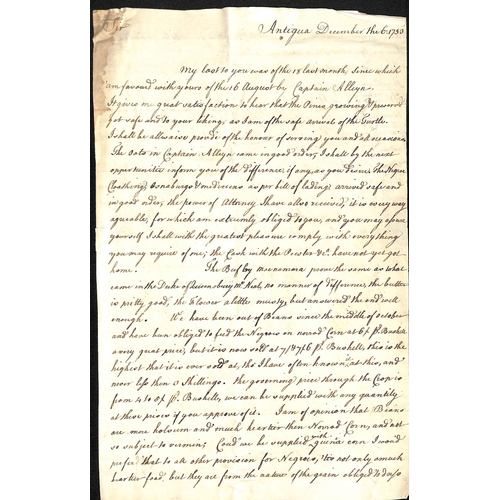 Sr
Antigua December the 6: 1750
My last to you was of the 18 last month, since which
I am favoured with yours of the 16 August by Captain Alleyn.
It give me great satisfaction to hear that the Pines growing & preserved
got safe and to your liking, as I am of the safe arrival of the Turtle
I shall be allwaise proud of the honour of serving you and at occasions
The Oats in Captain Alleyn came in good order, I shall by the next
opportunitie inform you of the difference, if any, as you desire. The Negroe
Cloathing, Osnaburgs as per bill of lading arrived safe and
in good order, the power of Attorney I have also received, it is every way
agreable, for which am extremly obliged to you, and you may assure
yourself I shall with the greatest pleasure comply with everything
you may require of me; the Cask with the Pewter &c. have not yet got
home. The prove the same as what
came in the Duke of Queensbury Mr. no manner of difference, the butter
is pretty good, the Flower a little musty, but answered the end well
enough. We have been out of Beans since the middle of october
and have been obliged to feed the Negroes on Corn at 6/ pr. Bushell
a very great price, but it is now sold at 7/ & 7/6 pr. Bushell, this is the
highest that it is ever sold at, tho I have often known it at this, and
never less then 3 Shillings. the governing price through the Crop is
from 4 to 5/ pr. Bushell, we can be supplied with any quantity
at these prices if you approve of it. I am of opinion that Beans
are more holsum and much heartier then Corn, and not
so subject to vermin; Coud we be supplied with guinea corn I woud
prefer that to all other provision for Negroes, tis not only a much
heartier food, but they are from the nature of the grain obliged to dress